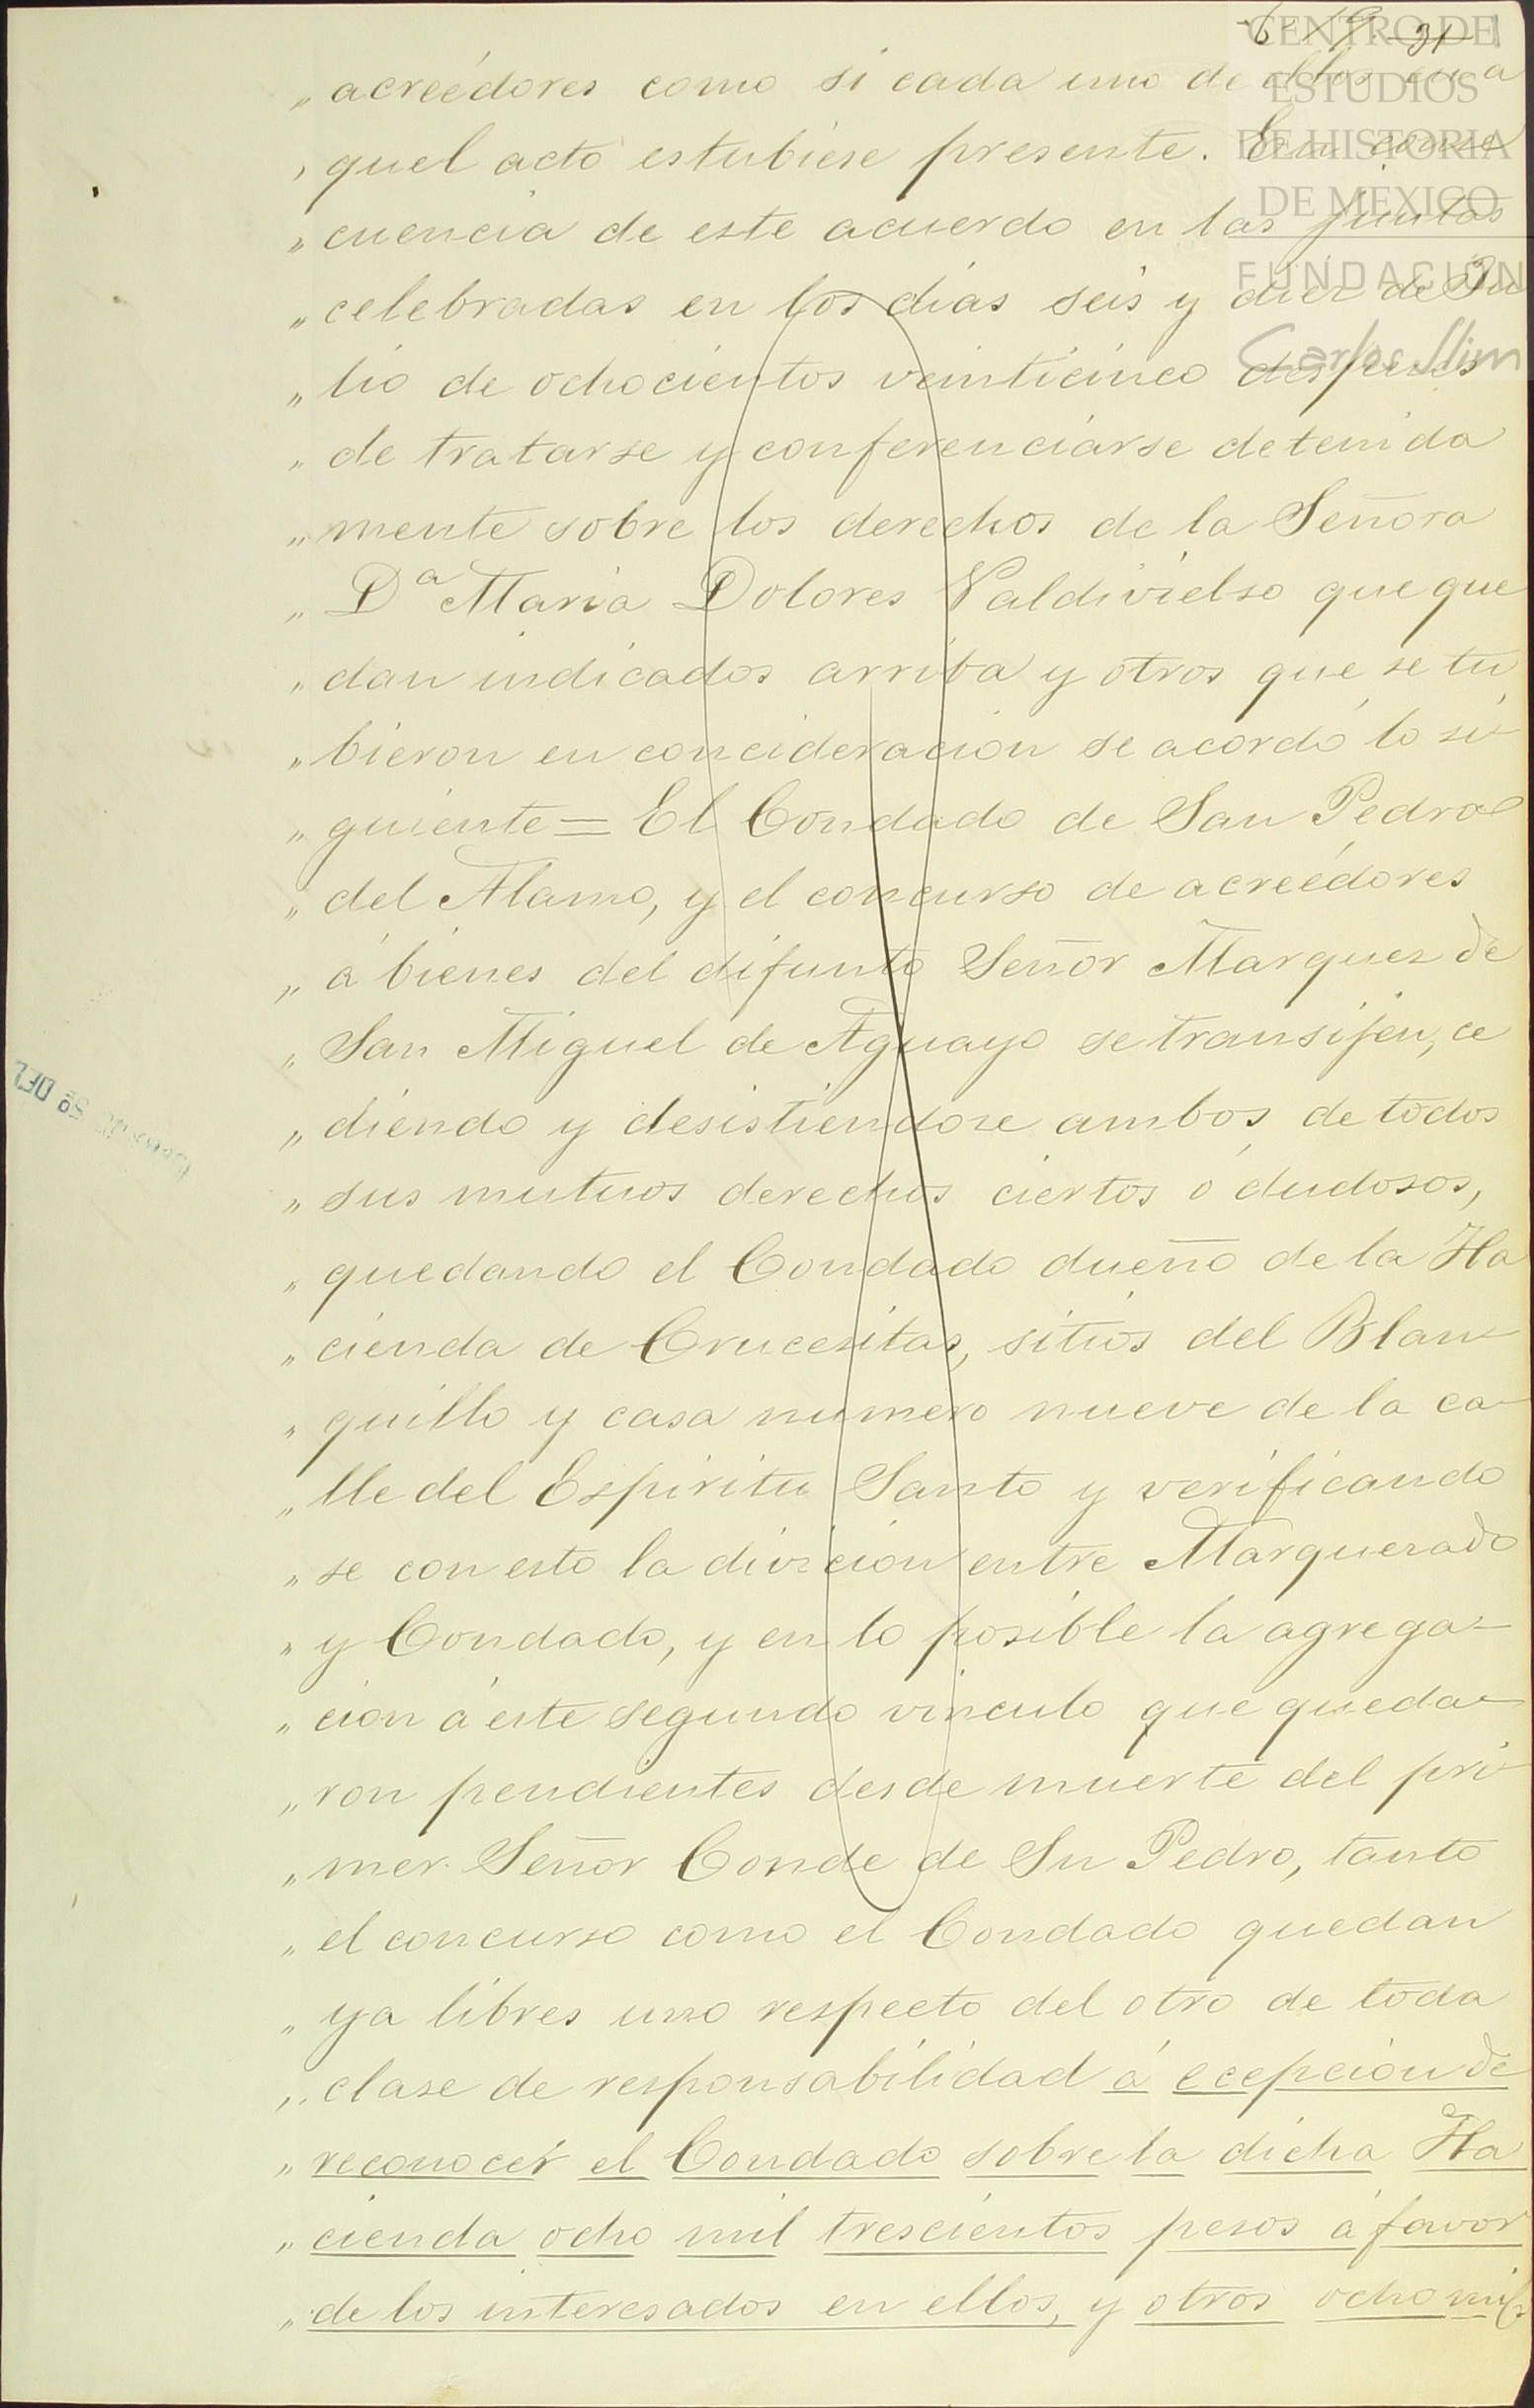 CENTRO DE
ESTUDIOS
DE HISTORIA
DE MEXICO
FUNDACIÓN
Carlos Slim
„ acreédores como si cada uno de ellos en a
„ quel acto estubiese presente. En conse
„ cuencia de este acuerdo en las juntas
„ celebradas en los dias seis y diez de Ju
„ lio de ochocientos veinticinco despues
„ de tratarse y conferenciarse detenida
„ mente sobre los derechos de la Señora
„ Dª Maria Dolores Valdivielso que que
„ dan indicados arriba y otros que se tu
„ bieron en concideracion se acordó lo si-
„ guiente = El Condado de San Pedro
„ del Alamo, y el concurso de acreédores
„ á bienes del difunto Señor Marquez de
„ San Miguel de Aguayo se transijen, ce
„ diendo y desistiendose ambos de todos
„ sus mutuos derechos ciertos ó dudosos,
„ quedando el Condado dueño de la Ha
„ cienda de Crucesitas, sitios del Blan-
„ quillo y casa numero nueve de la ca-
„ lle del Espiritu Santo y verificando
„ se con esto la divicion entre Marquezado
„ y Condado, y en lo posible la agrega-
„ cion á este segundo vinculo que queda-
„ ron pendientes desde muerte del pri-
„ mer Señor Conde de Sn Pedro, tanto
„ el concurso como el Condado quedan
„ ya libres uno respecto del otro de toda
„ clase de responsabilidad á ecepcion de
„ reconocer el Condado sobre la dicha Ha
„ cienda ocho mil trescientos pesos á favor
„ de los interesados en ellos, y otros ocho mil